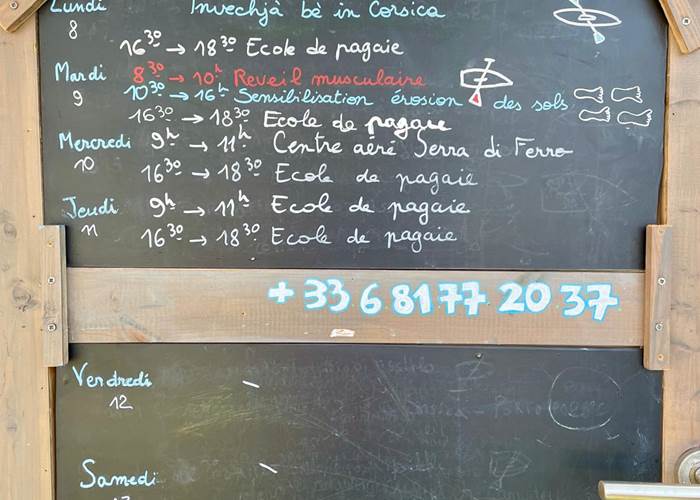 Lundi Invechjà bè in Corsica
8
16³⁰ → 18³⁰ Ecole de pagaie
Mardi 8³⁰ → 10ʰ Reveil musculaire
9 10³⁰ → 16ʰ Sensibilisation érosion des sols
16³⁰ → 18³⁰ Ecole de pagaie
Mercredi 9ʰ → 11ʰ Centre aéré Serra di Ferro
10 16³⁰ → 18³⁰ Ecole de pagaie
Jeudi 9ʰ → 11ʰ Ecole de pagaie
11 16³⁰ → 18³⁰ Ecole de pagaie
+ 33 6 81 77 20 37
Vendredi
12
Samedi
13